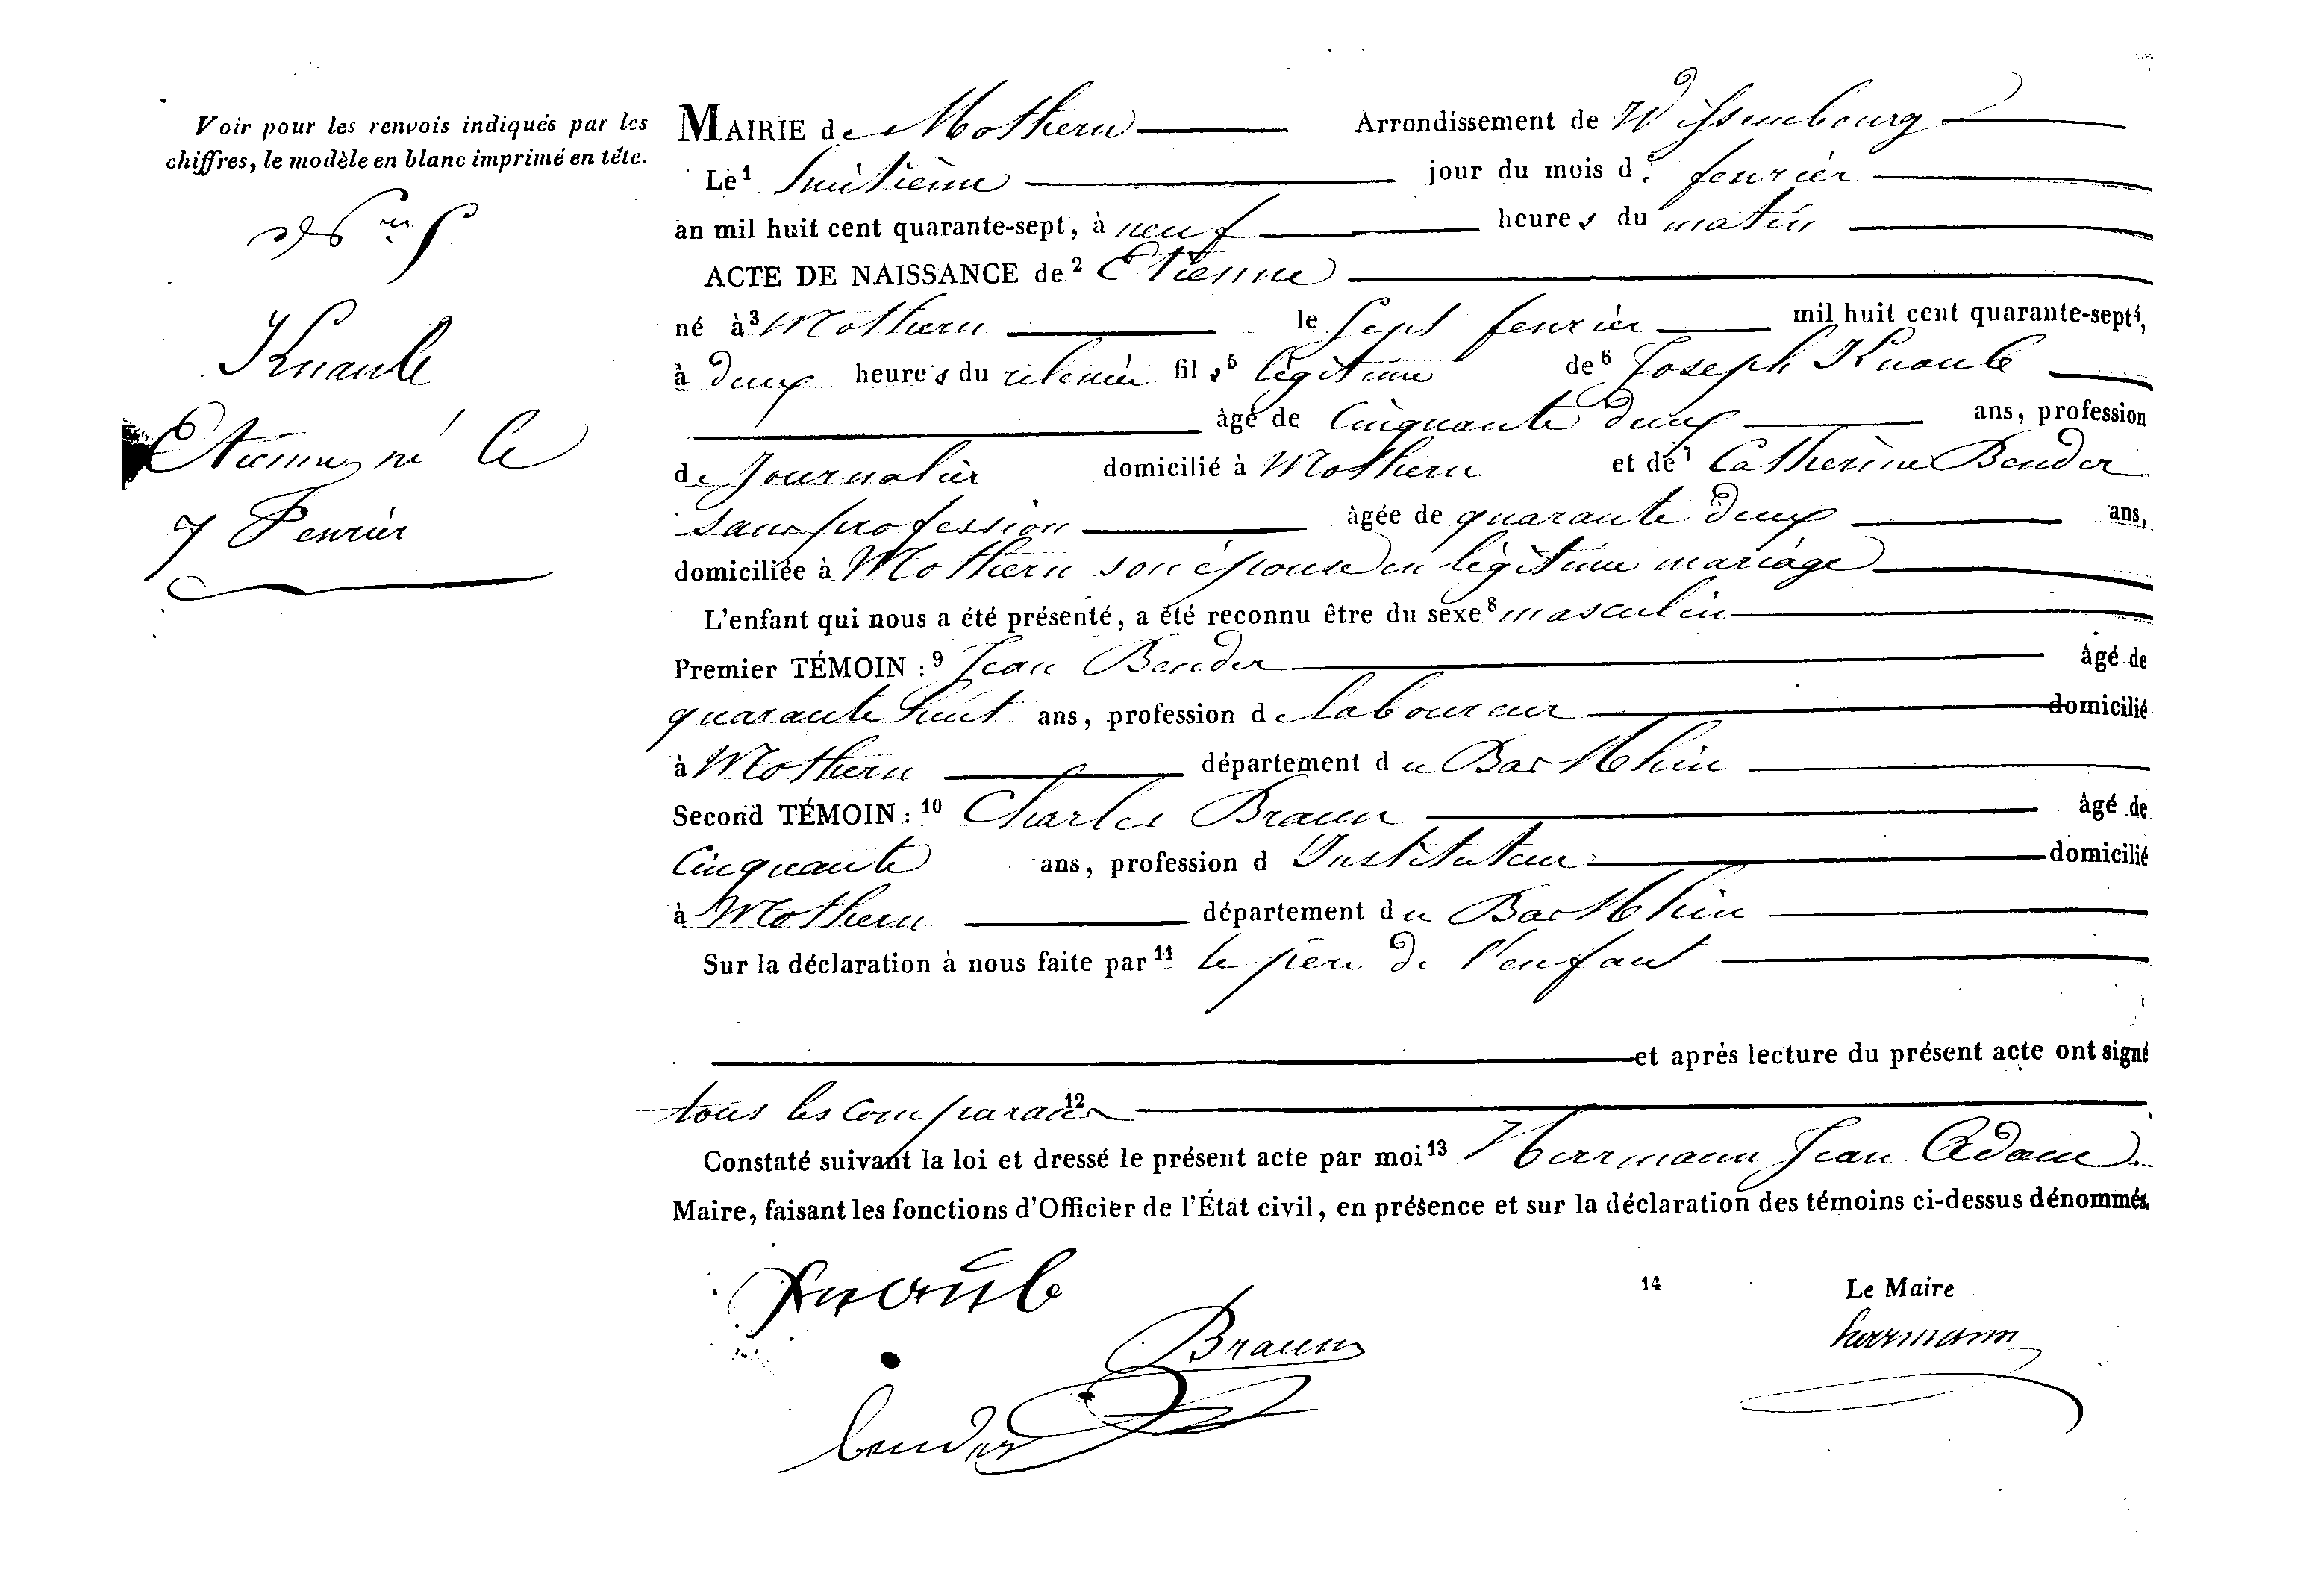 Voir pour les renvois indiqués par les
chiffres, le modèle en blanc imprimé en tête.
Knaule
Etienne, né le
7 Fevrier
MAIRIE de Mothern Arrondissement de Wissembourg
Le 1 huitième jour du mois de fevrier
an mil huit cent quarante-sept, à neuf heures du matin
ACTE DE NAISSANCE de 2 Etienne
né à 3 Mothern le Sept fevrier mil huit cent quarante-sept 4,
à deux heures du relevée fils 5 légitime de 6 Joseph Knaule
âgé de Cinquante deux ans, profession
de Journalier domicilié à Mothern et de 7 Catherine Bender
sans profession âgée de quarante deux ans,
domiciliée à Mothern son épouse en légitime mariage
L'enfant qui nous a été présenté, a été reconnu être du sexe 8 masculin
Premier TÉMOIN : 9 Jean Bender âgé de
quarante huit ans, profession de laboureur domicilié
à Mothern département du Bas Rhin
Second TÉMOIN : 10 Charles Braun âgé de
Cinquante ans, profession d Instituteur domicilié
à Mothern département du Bas Rhin
Sur la déclaration à nous faite par 11 le père de l'enfant
et après lecture du présent acte ont signé
tous les comparans 12
Constaté suivant la loi et dressé le présent acte par moi 13 Herrmann Jean Adam
Maire, faisant les fonctions d'Officier de l'État civil, en présence et sur la déclaration des témoins ci-dessus dénommés.
Knaule
14 Le Maire
Braun herrmann
bender